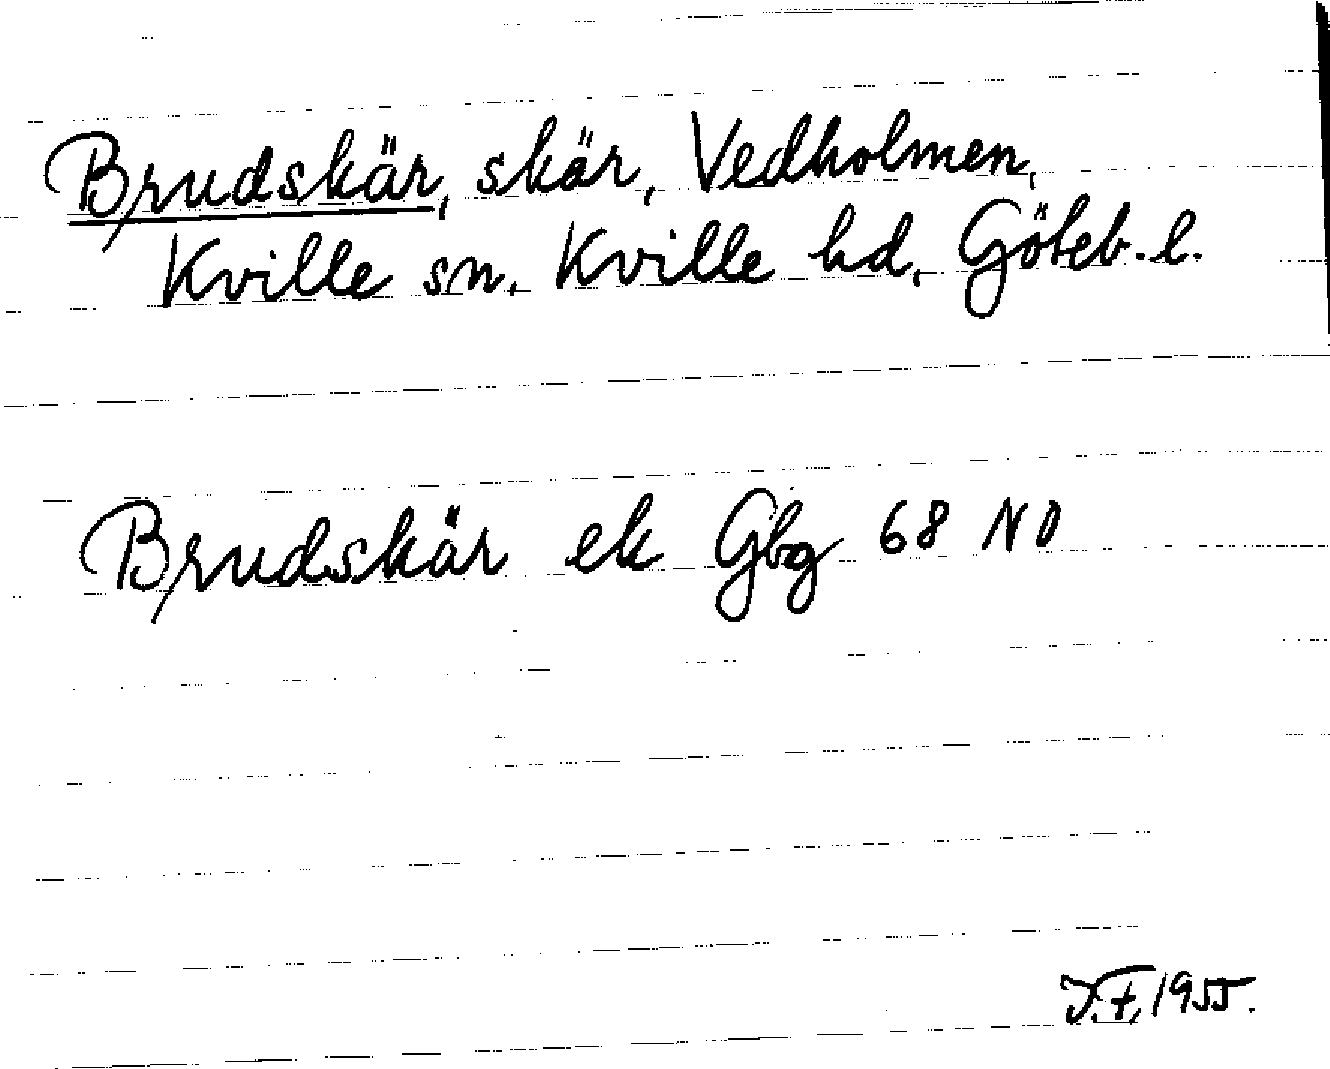 Brudskär, skär, Vedholmen,
Kville sn, Kville hd, Göteb. l.
Brudskär ek Gbg 68 NO
J.F, 1955.